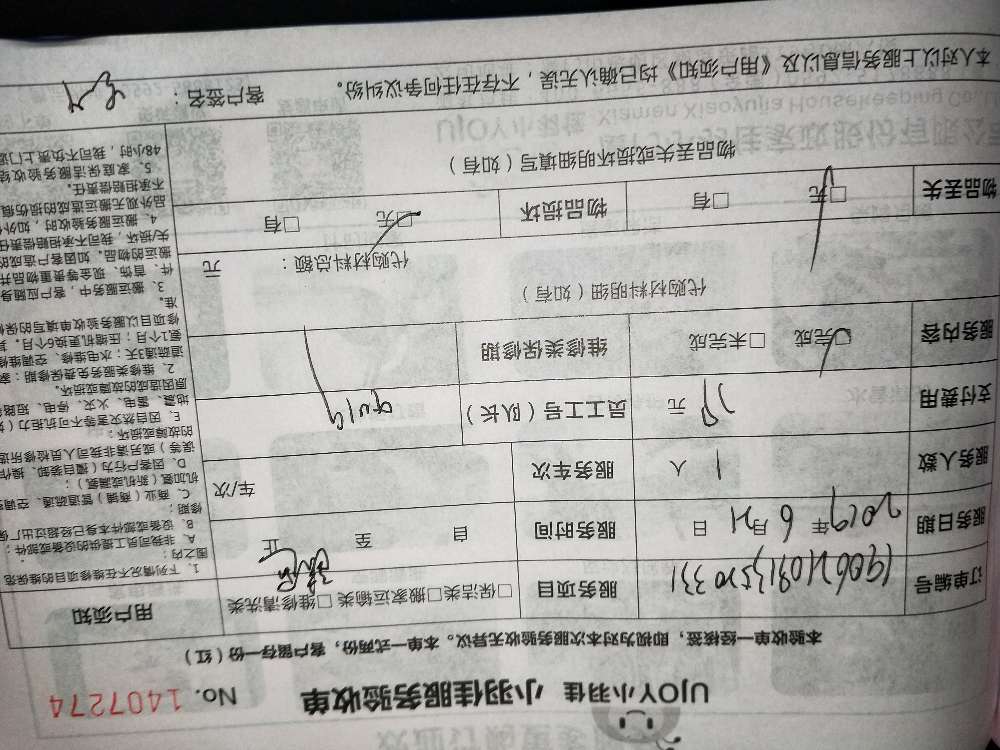 UJOY小羽佳 小羽佳服务验收单 No. 1407274
本验收单一经核签，即视为对本次服务验收无异议。本单一式两份，客户留存一份（红）
订单编号
服务项目 □保洁类□搬家运输类 □维修清洗类
用户须知
服务日期 2019 年 6 月 21 日
服务时间 自 至 止
服务人数 1 人
服务车次 车/次
支付费用 元
员工工号（队长）
服务内容 □完成 □未完成
维修类保修期
代购材料明细（如有）
代购材料总额： 元
物品丢失 □无 □有
物品损坏 □无 □有
物品丢失或损坏明细填写（如有）
1、下列情况不在维修项目的维保范
围之内：
A、非我司员工提供的设备或部件；
B、设备或部件本身已经超过出厂保
修期；
C、商业（商铺）管道疏通、空调
机加氨（新机或漏氨）；
D、因客户行为（擅自装卸、操作
误等）或另请非我司人员检修所造
的故障或损坏；
E、因自然灾害等不可抗拒力（如
地震、雷电、火灾、停电、短路
原因造成的故障或损坏。
2、维修类服务免费保修期：家
道疏通3天；水电维修、空调维修
氨1个月；压缩机更换6个月。其
修项目以服务验收单填写的保修
准。
3、搬运服务中，客户应随身
件、首饰、现金等贵重物品并
搬运的物品。如因客户造成的
失/损坏，我司不承担赔偿责任
4、搬运服务验收时，如外包
品外观无搬运造成的损伤痕
不承担赔偿责任。
5、家庭保洁服务验收结
48小时，我司不负责上门返
本人对以上服务信息以及《用户须知》均已确认无误，不存在任何争议纠纷。 客户签名：